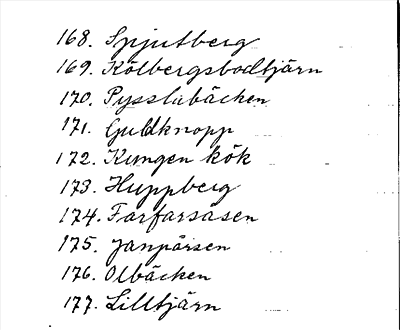 168. Spjutberg
169. Kölbergsbodtjärn
170. Pysslabäcken
171. Guldknopp
172. Kungen kök
173. Huppberg
174. Farfarsåsen
175. Janpårsen
176. Olbäcken
177. Lilltjärn